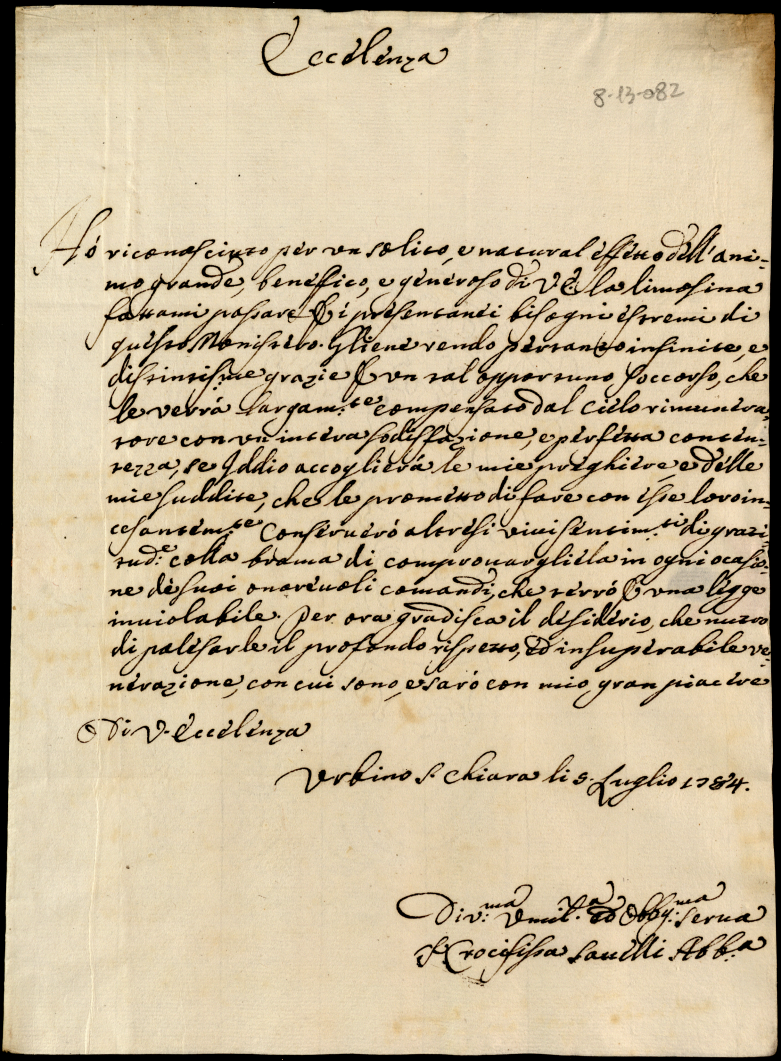 Eccelenza
8-13-082
Hó riconosciuto per un solito, e natural effetto dell'ani-
mo grande, benefico, e generoso di V.E. la limosina
fattami passare p i presentanei bisogni estremi di
questo Monistero. Gliene rendo pertanto infinite, e
distintissime grazie p un tal opportuno soccorso, che
le verrá largam.te compensato dal cielo rimunera-
tore con un intera sodisfazione, e perfetta conten-
tezza, se Iddio accoglierá le mie preghiere e delle
mie suddite, che le prometto di fare con esse loro in-
cesantem.te Conserveró altresi vivi sentim.ti di grati-
tud.e colla brama di comprouargliela in ogni ocasio-
ne de suoi onoreuoli comandi, che terró p una legge
inuiolabile. Per ora gradisca il desiderio, che nutro
di palesarle il profondo rispetto, ed insuperabile ve-
nerazione, con cui sono, e saró con mio gran piacere
Di V. Eccelenza
Urbino S. Chiara li 5. Luglio 1784.
Div.ma Umil.ma ed Obbg.ma Serua
S. Crocifissa Sauelli Abb.a